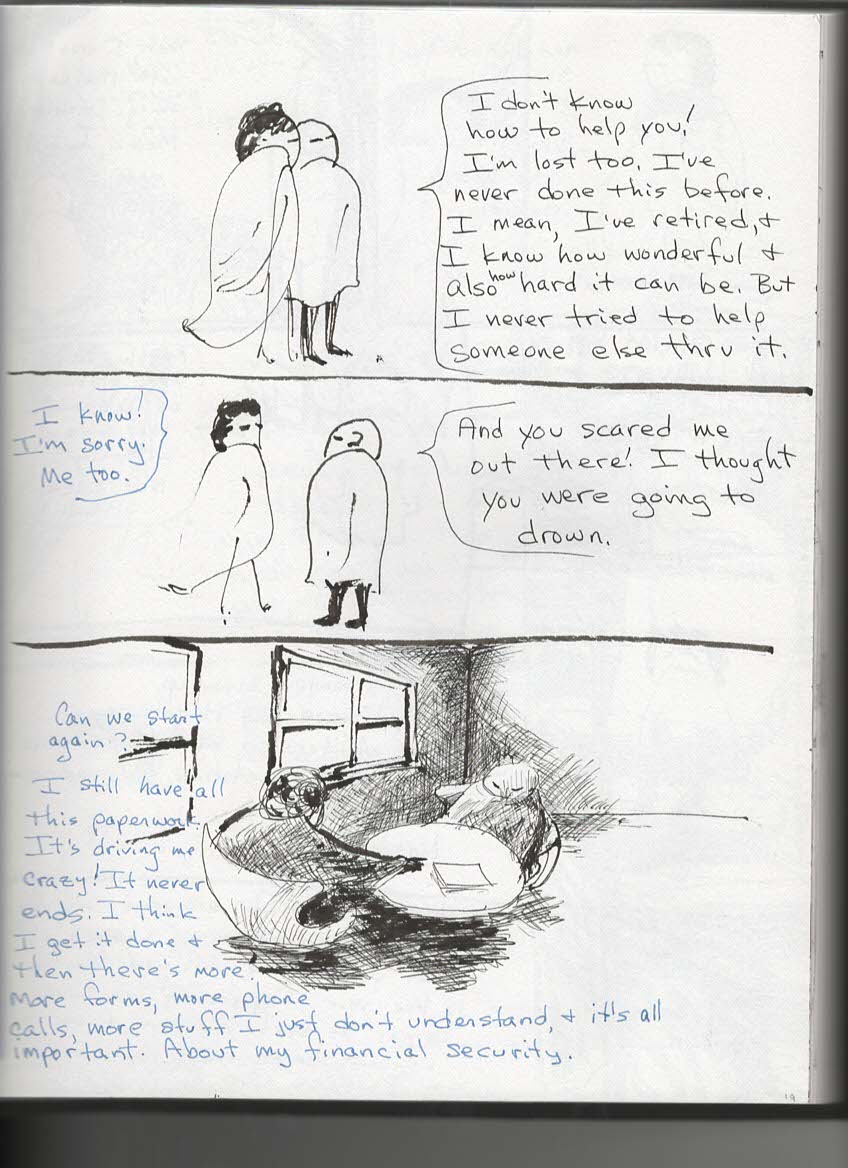 I don't know
how to help you!
I'm lost too. I've
never done this before.
I mean, I've retired, &
I know how wonderful &
also how hard it can be. But
I never tried to help
someone else thru it.
I know!
I'm sorry.
Me too.
And you scared me
out there! I thought
you were going to
drown.
Can we start
again?
I still have all
this paperwork.
It's driving me
crazy! It never
ends. I think
I get it done &
then there's more.
More forms, more phone
calls, more stuff I just don't understand, & it's all
important. About my financial security.
19